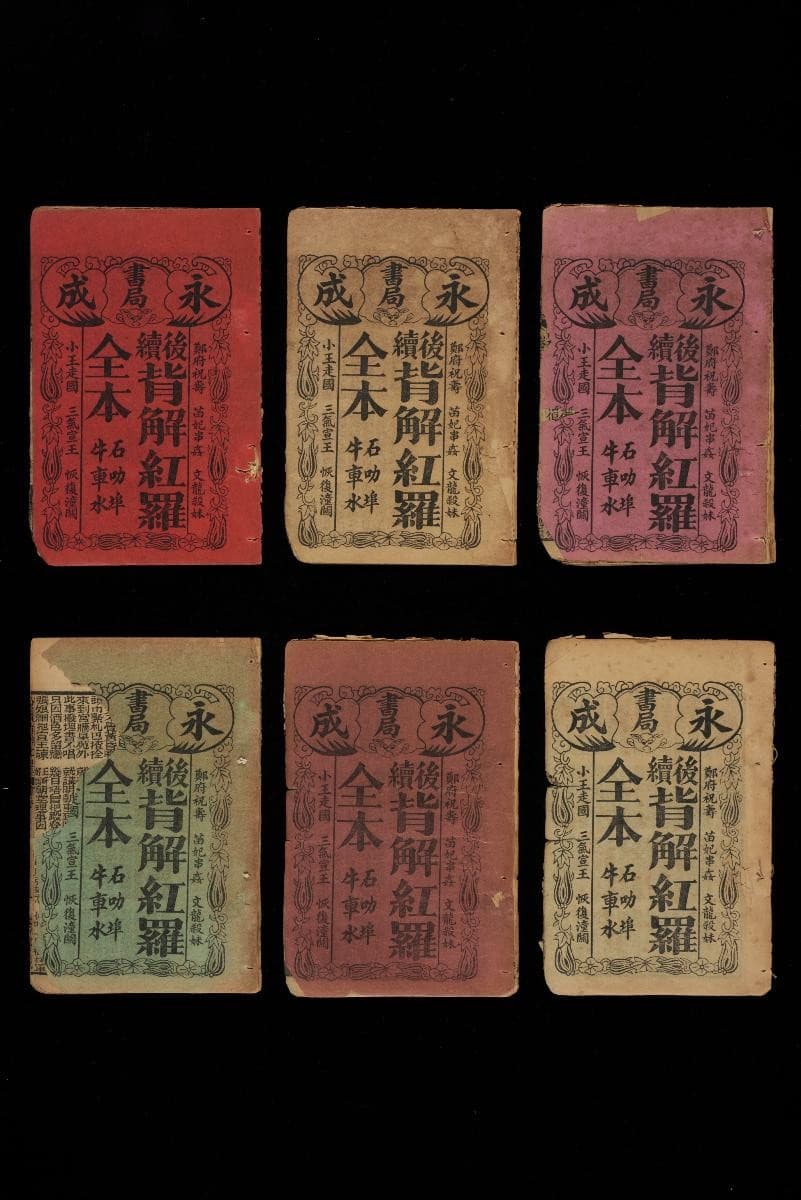 永成書局
鄭府祝壽 苗妃串姦 文龍殺妹
後續背解紅羅
全本
石叻埠
牛車水
小王走國 三氣宣王 恢復潼關
永成書局
鄭府祝壽 苗妃串姦 文龍殺妹
後續背解紅羅
全本
石叻埠
牛車水
小王走國 三氣宣王 恢復潼關
永成書局
鄭府祝壽 苗妃串姦 文龍殺妹
後續背解紅羅
全本
石叻埠
牛車水
小王走國 三氣宣王 恢復潼關
永書局
鄭府祝壽 苗妃串姦 文龍殺妹
後續背解紅羅
全本
石叻埠
牛車水
走國 三氣宣王 恢復潼關
永成書局
鄭府祝壽 苗妃串姦 文龍殺妹
後續背解紅羅
全本
石叻埠
牛車水
小王走國 三氣宣王 恢復潼關
永成書局
鄭府祝壽 苗妃串姦 文龍殺妹
後續背解紅羅
全本
石叻埠
牛車水
小王走國 三氣宣王 恢復潼關